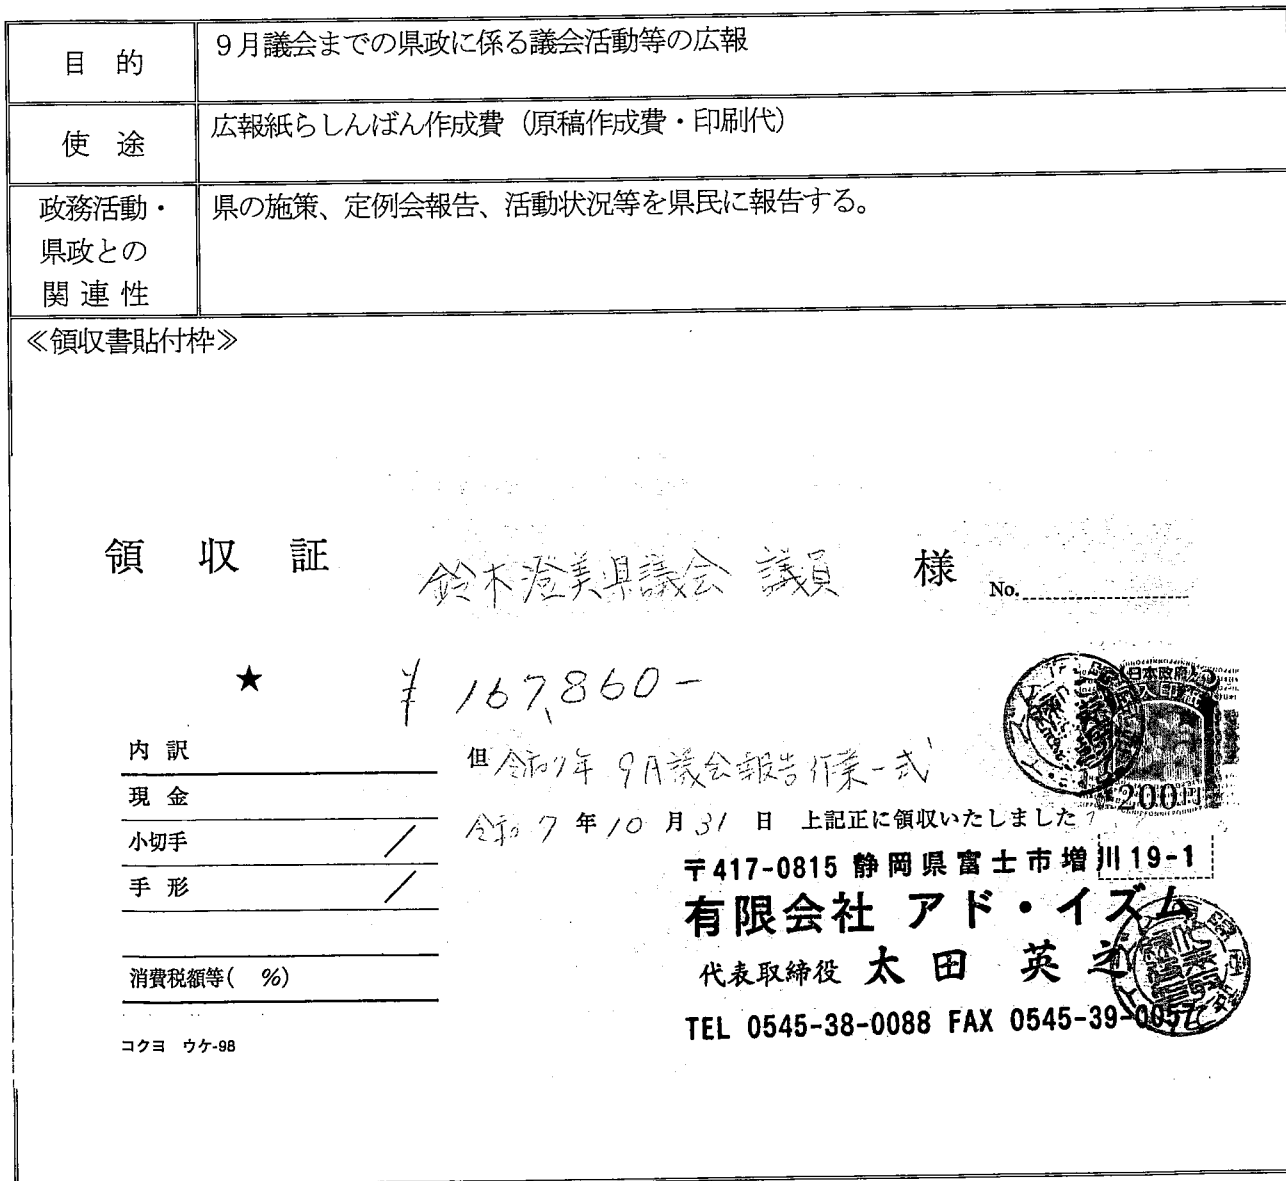 目的
9月議会までの県政に係る議会活動等の広報
使途
広報紙らしんばん作成費（原稿作成費・印刷代）
政務活動・
県政との
関連性
県の施策、定例会報告、活動状況等を県民に報告する。
≪領収書貼付枠≫
領収証 鈴木澄美県議会 議員 様 No.
★ ¥167,860-
内訳
現金
小切手
手形
消費税額等( %)
コクヨ ウケ-98
但 令和7年 9月議会報告作業一式
令和7年10月31日 上記正に領収いたしました
日本政府
収入印紙
200円
〒417-0815 静岡県富士市増川19-1
有限会社 アド・イズム
代表取締役 太田 英之
TEL 0545-38-0088 FAX 0545-39-0057